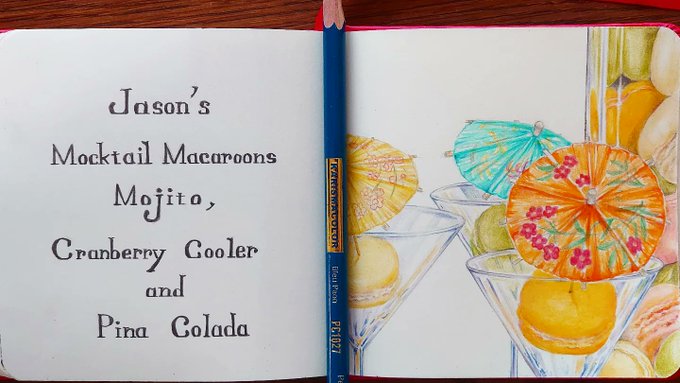 Jason's
Mocktail Macaroons
Mojito,
Cranberry Cooler
and
Pina Colada
PRISMACOLOR
PC1027